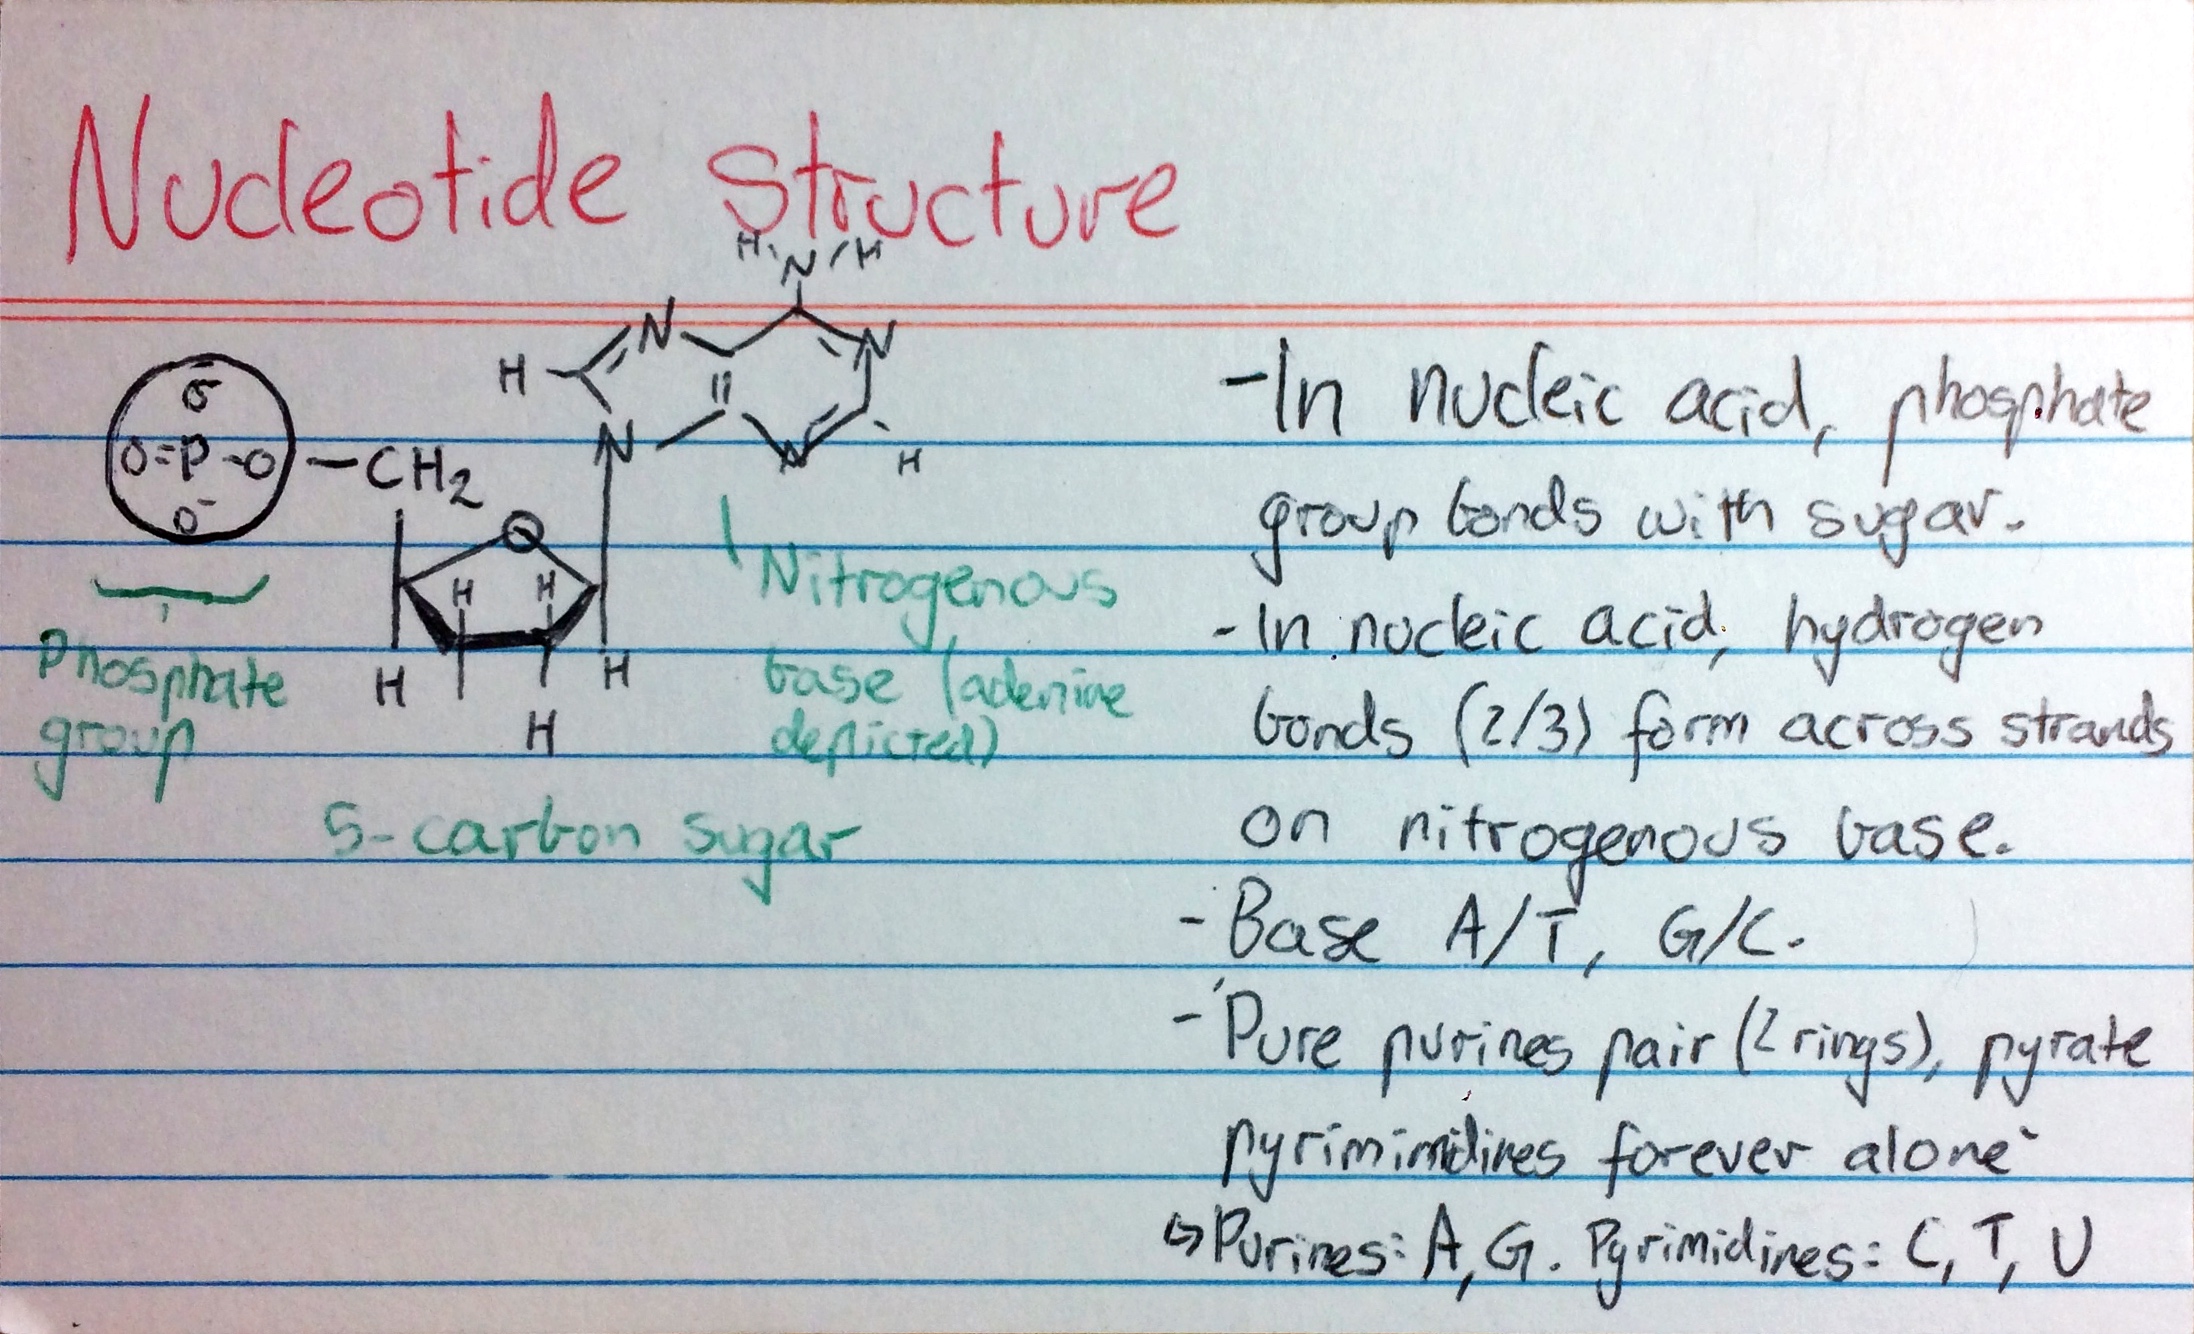 Nucleotide Structure
H N H
N N
H
O⁻
O=P-O-CH2
N N H
O⁻
O
H H
H H
H
Phosphate
group
Nitrogenous
base (adenine
depicted)
5-carbon sugar
-In nucleic acid, phosphate
group bonds with sugar.
-In nucleic acid, hydrogen
bonds (2/3) form across strands
on nitrogenous base.
-Base A/T, G/C.
-Pure purines pair (2 rings), pyrate
pyrimimidines forever alone
↳Purines: A, G. Pyrimidines: C, T, U